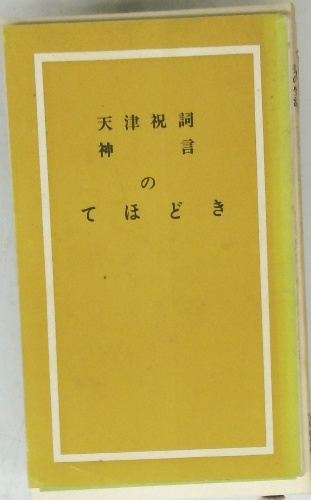 天津祝詞
神言
の
てほどき